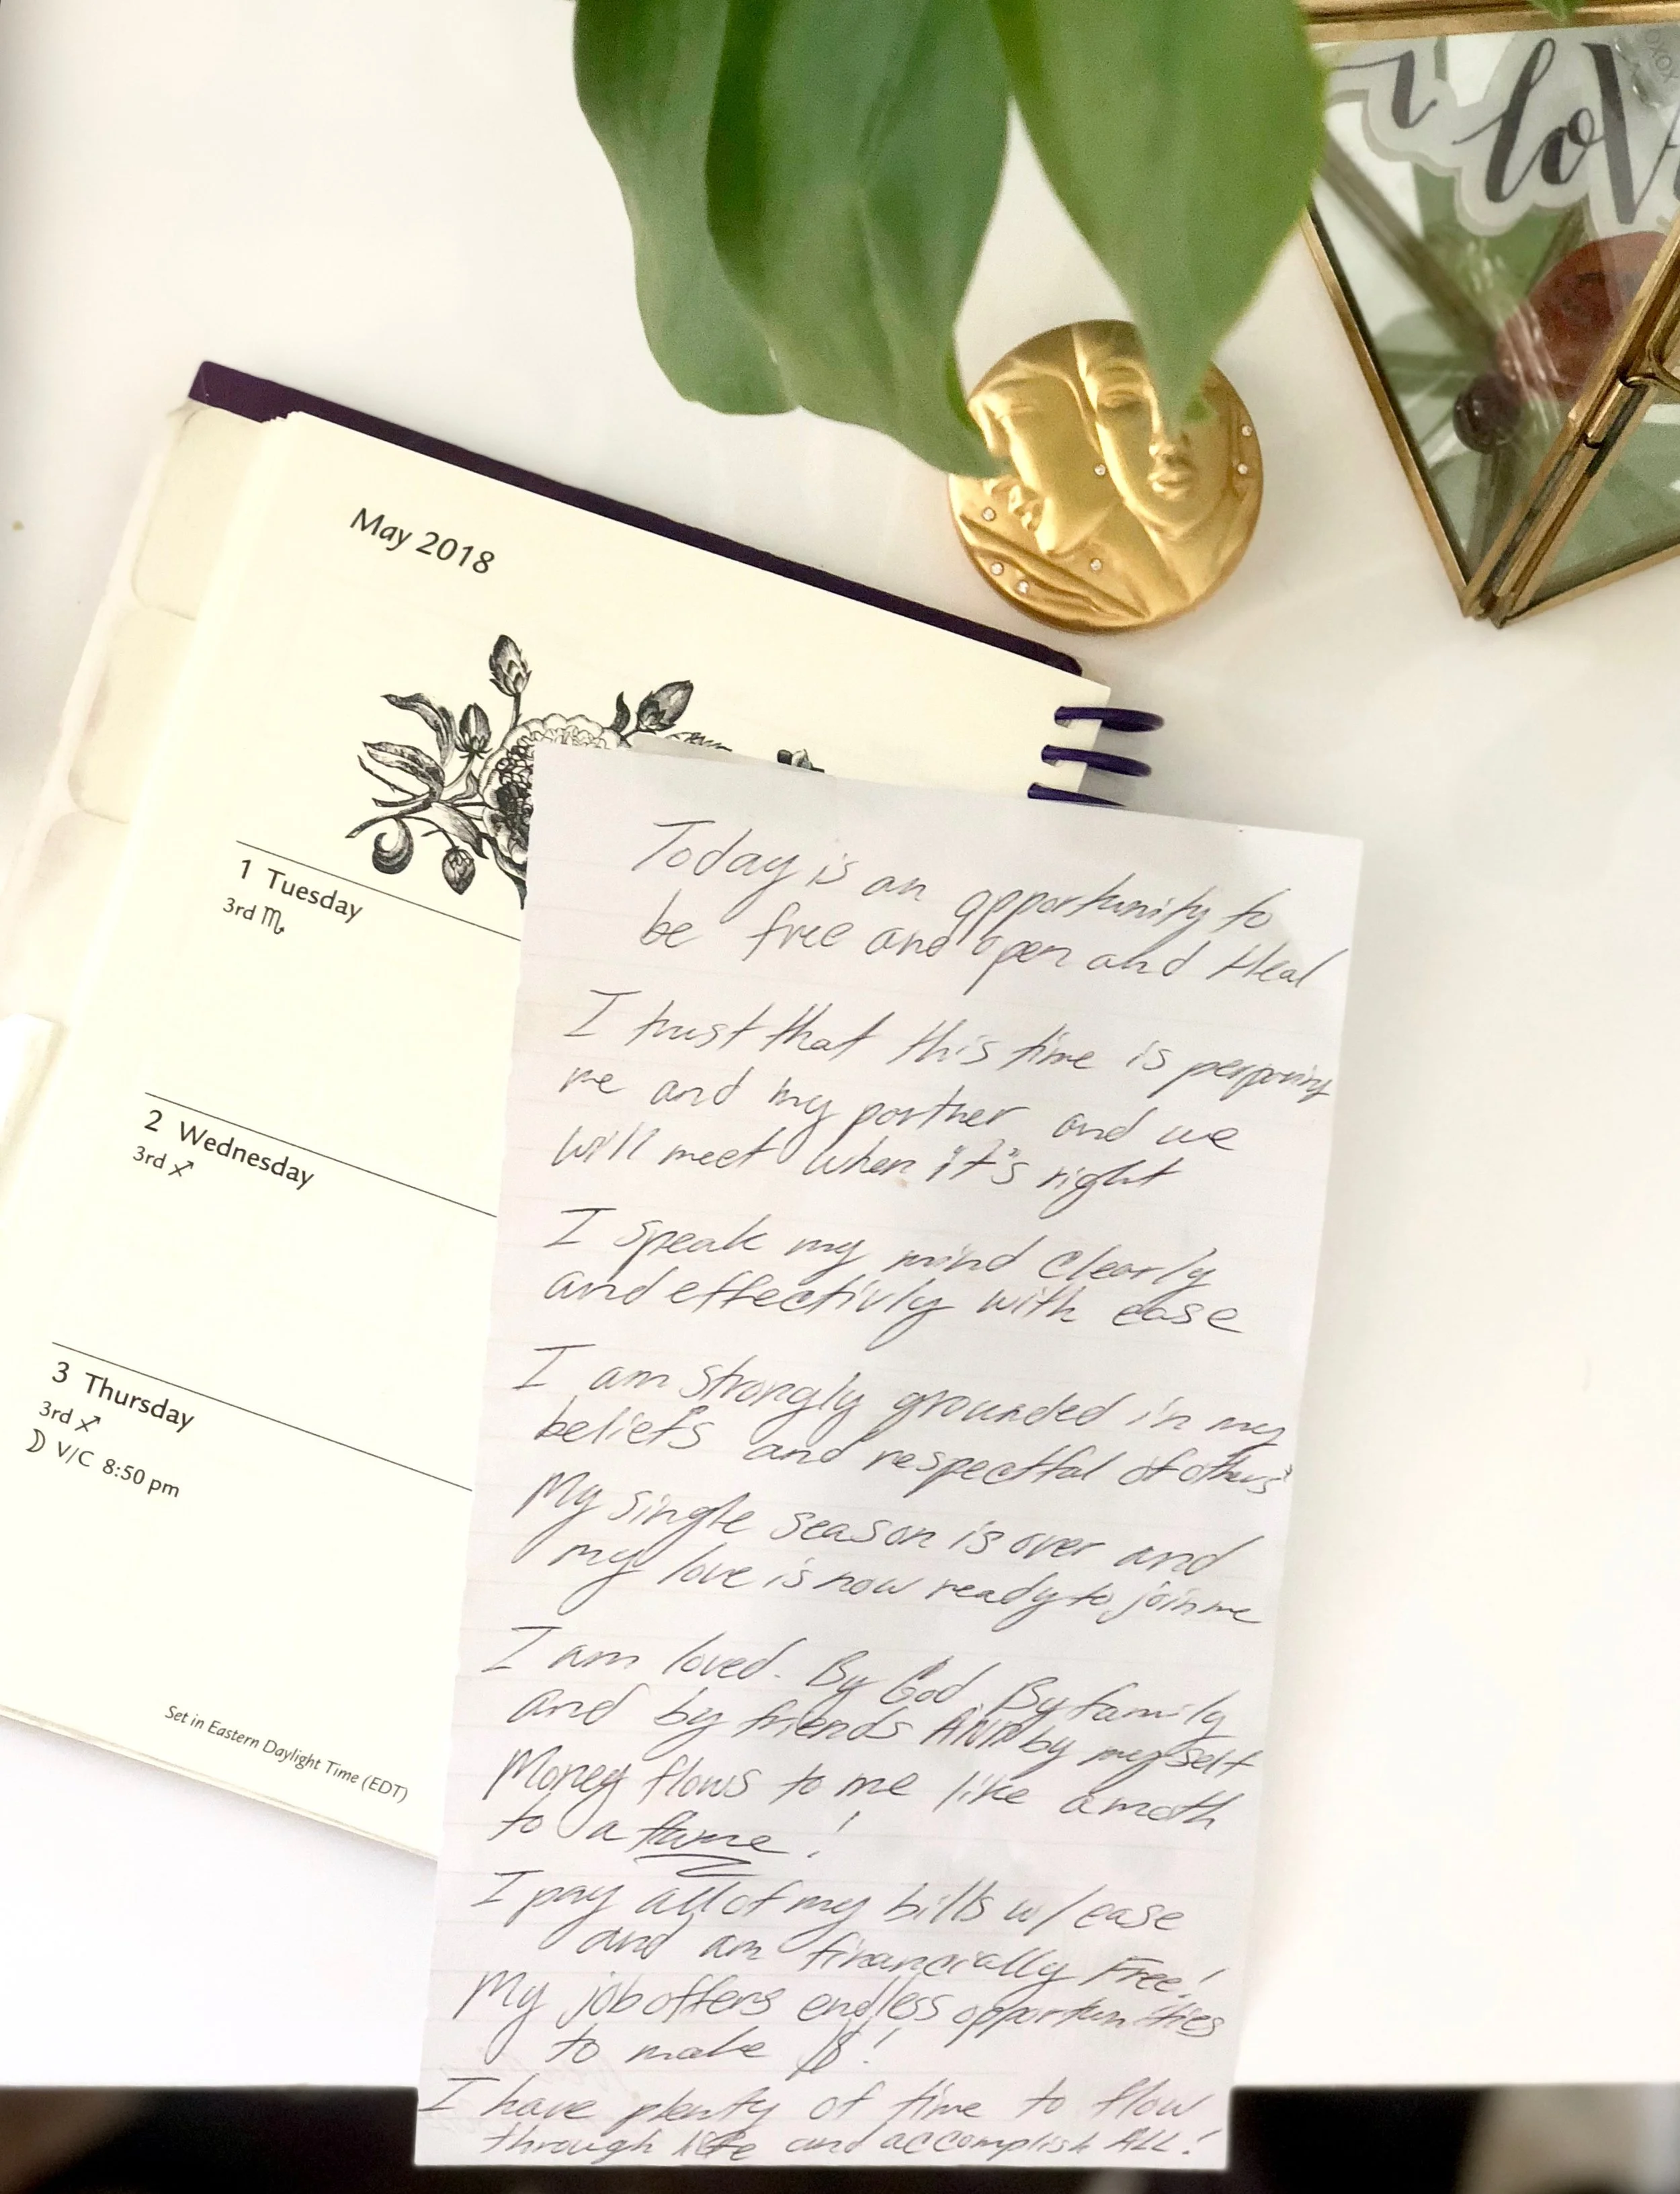 i lov
xoxo
May 2018
1 Tuesday
3rd ♏
2 Wednesday
3rd ♐
3 Thursday
3rd ♐
☽ V/C 8:50 pm
Set in Eastern Daylight Time (EDT)
Today is an opportunity to
be free and open and Heal
I trust that this time is perparing
me and my partner and we
will meet when "it"s right
I speak my mind clearly
and effectivly with ease
I am strongly grounded in my
beliefs and respectful of others'
My single season is over and
my love is now ready to join me
I am loved. By God. By family
and by friends AND by myself
Money flows to me like a moth
to a flame!
I pay all of my bills w/ ease
and am financially Free!
My job offers endless opportunities
to make $!
I have plenty of time to flow
through life and accomplish ALL!